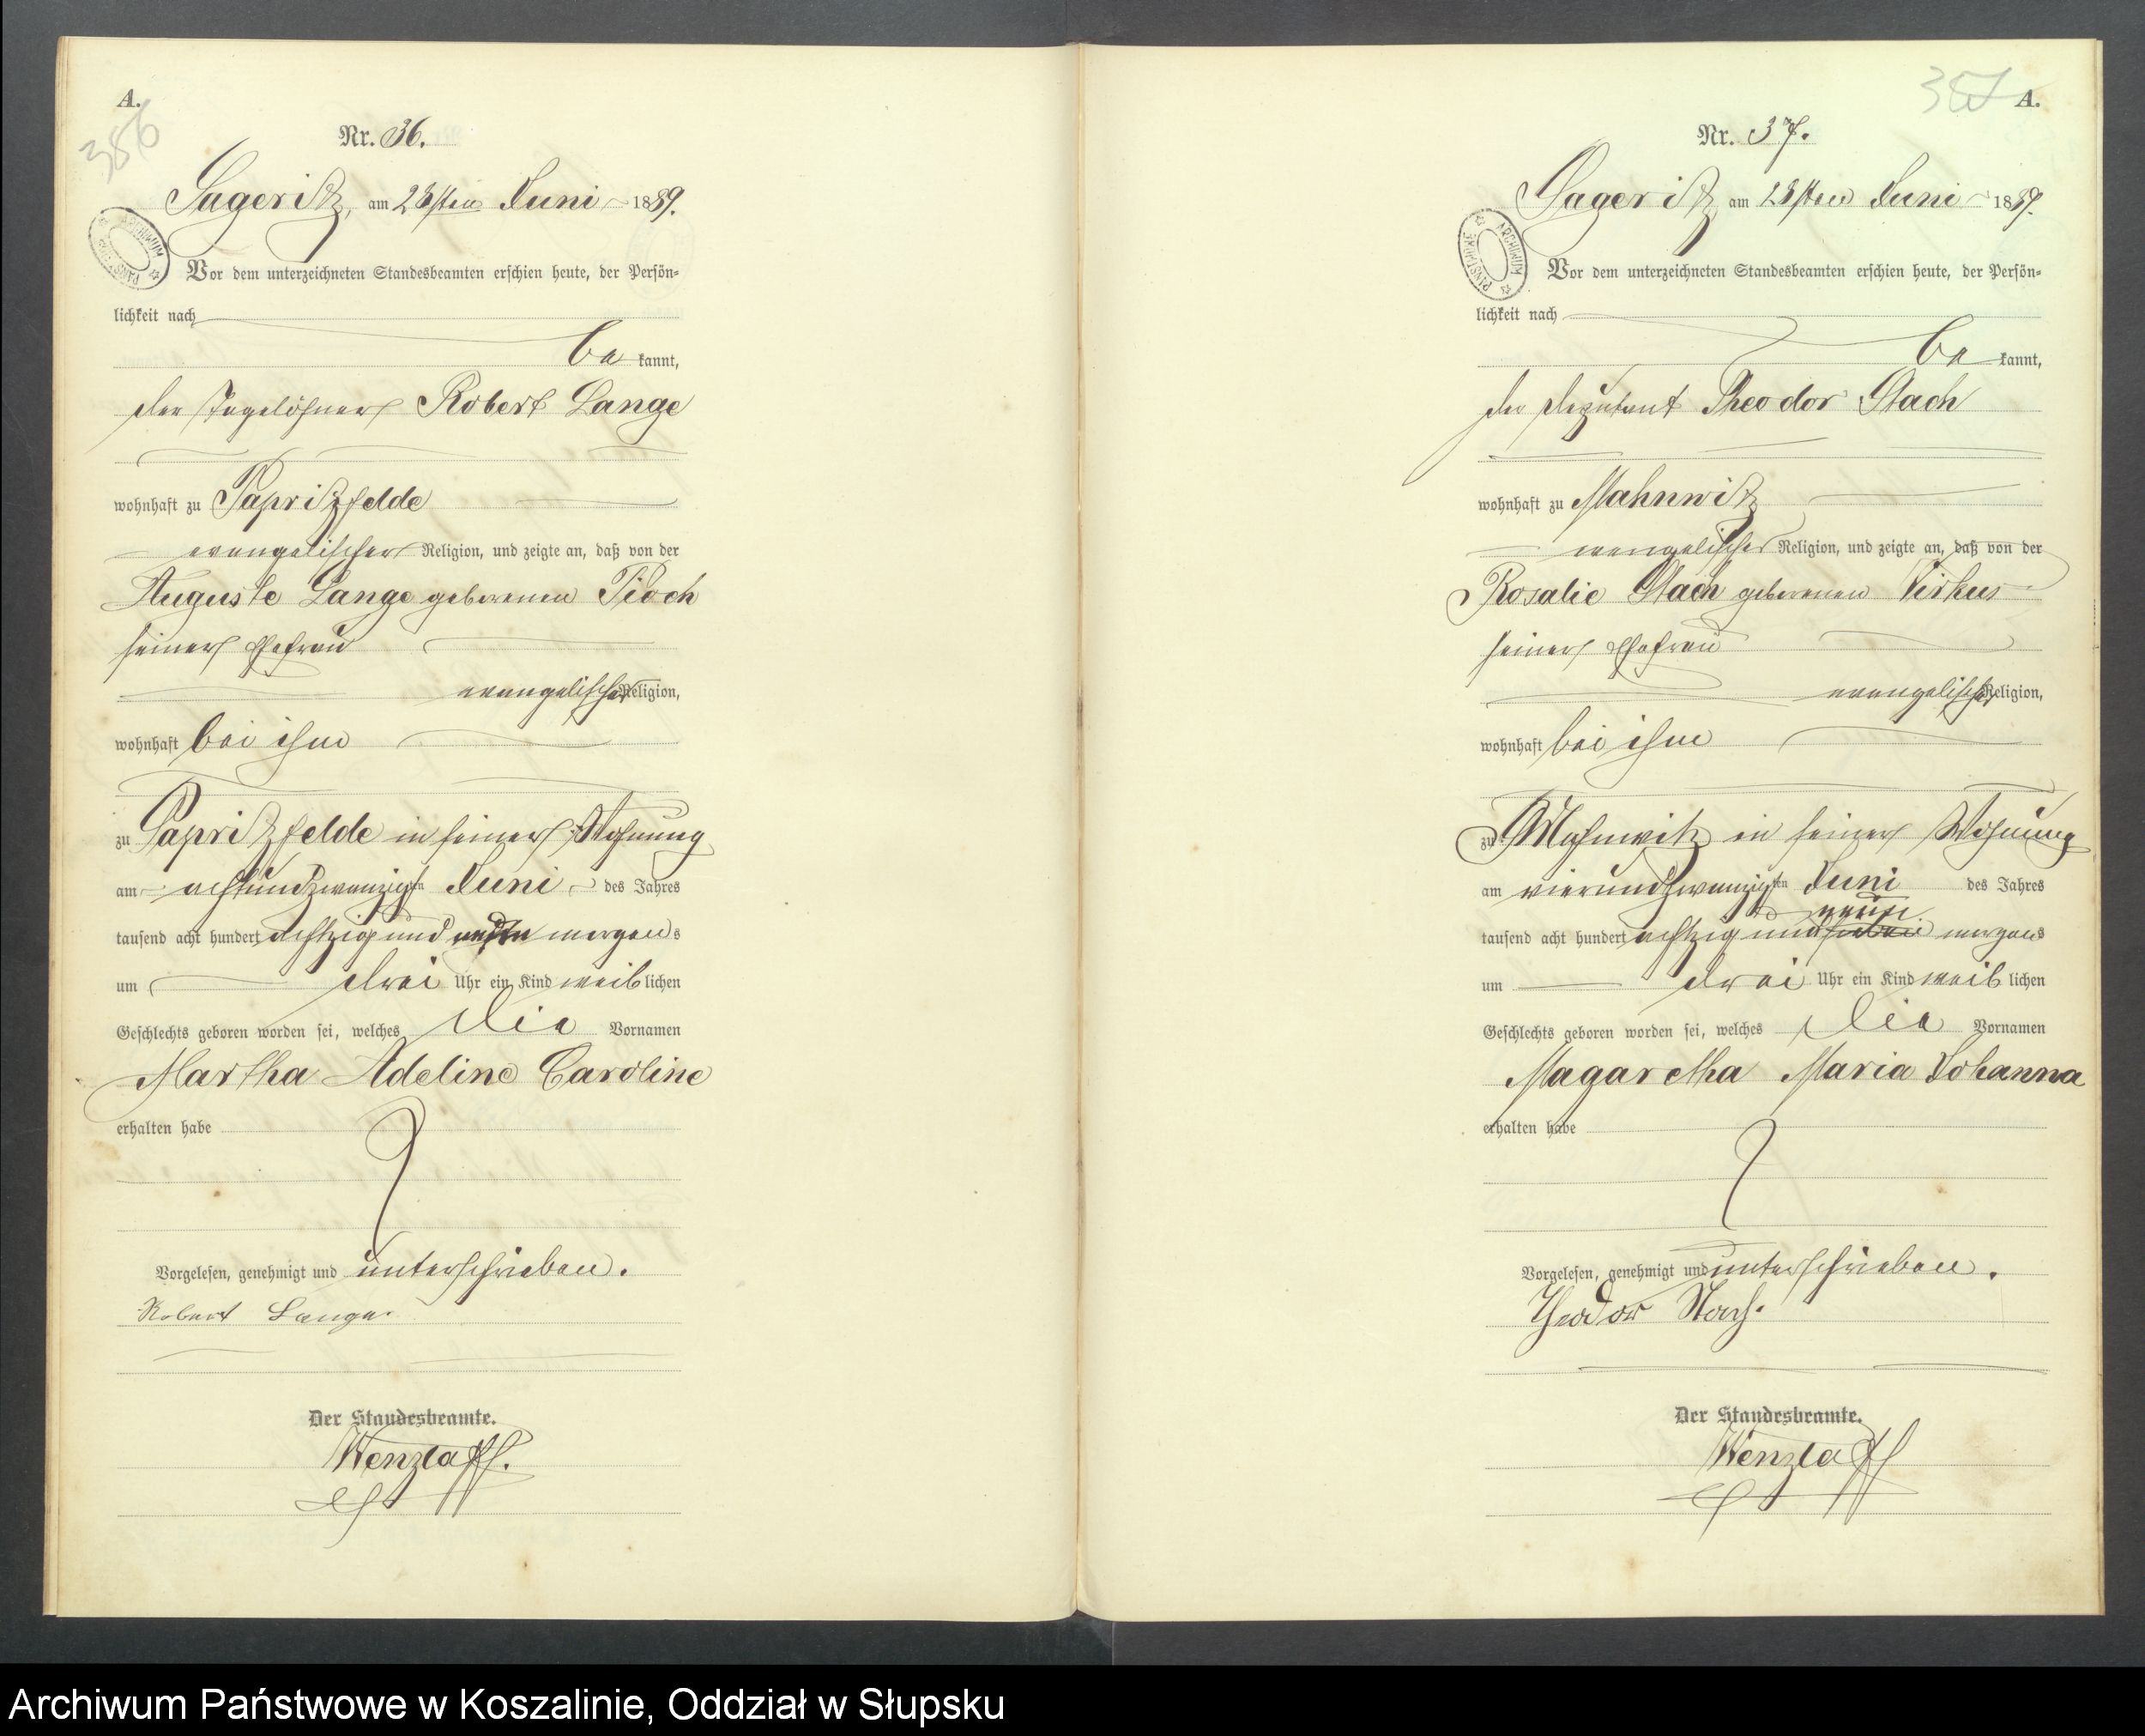 A.
386
Nr. 36.
Sageritz, am 28sten Juni 1889.
Vor dem unterzeichneten Standesbeamten erschien heute, der Persön-
lichkeit nach
be kannt,
der Tagelöhner Robert Lange
wohnhaft zu Papritzfelde
evangelischer Religion, und zeigte an, daß von der
Auguste Lange geborenen Pioch
seiner Ehefrau
evangelischer Religion,
wohnhaft bei ihm
zu Papritzfelde in seiner Wohnung
am achtundzwanzigsten Juni des Jahres
tausend acht hundert achtzig und neun morgens
um drei Uhr ein Kind weiblichen
Geschlechts geboren worden sei, welches die Vornamen
Martha Adeline Caroline
erhalten habe
Vorgelesen, genehmigt und unterschrieben.
Robert Lange.
Der Standesbeamte.
Wenzlaff.
387 A.
Nr. 37.
Sageritz am 28sten Juni 1889.
Vor dem unterzeichneten Standesbeamten erschien heute, der Persön-
lichkeit nach
be kannt,
der Deputant Theodor Stach
wohnhaft zu Mahnwitz
evangelischer Religion, und zeigte an, daß von der
Rosalie Stach geborenen Virkus
seiner Ehefrau
evangelischer Religion,
wohnhaft bei ihm
zu Mahnwitz in seiner Wohnung
am vierundzwanzigsten Juni des Jahres
neun
tausend acht hundert achtzig und sieben morgens
um drei Uhr ein Kind weiblichen
Geschlechts geboren worden sei, welches die Vornamen
Magaretha Maria Johanna
erhalten habe
Vorgelesen, genehmigt und unterschrieben.
Theodor Stach.
Der Standesbeamte.
Wenzlaff
Archiwum Państwowe w Koszalinie, Oddział w Słupsku